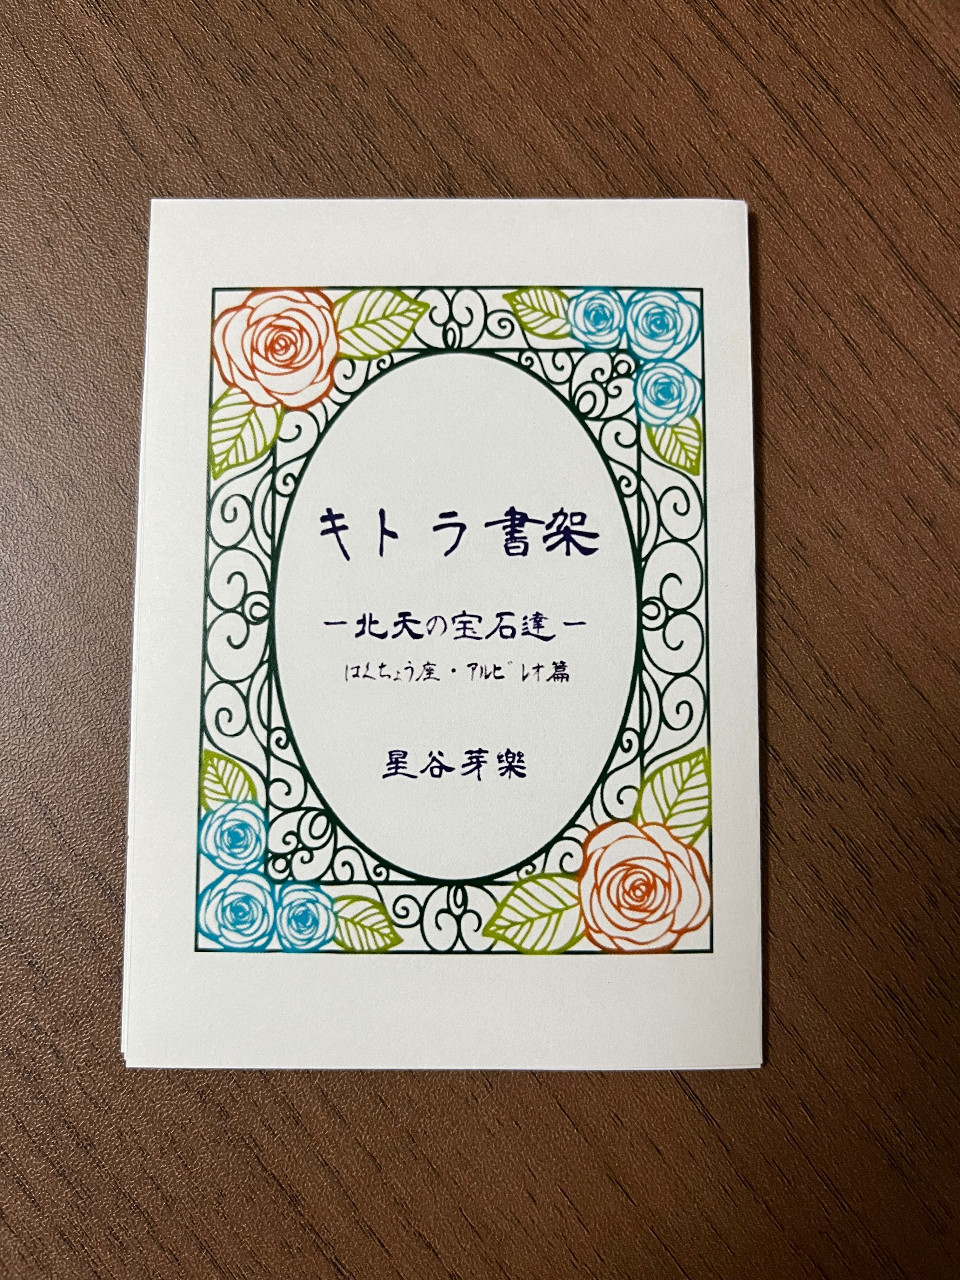 キトラ書架
－北天の宝石達－
はくちょう座・アルビレオ篇
星谷芽樂